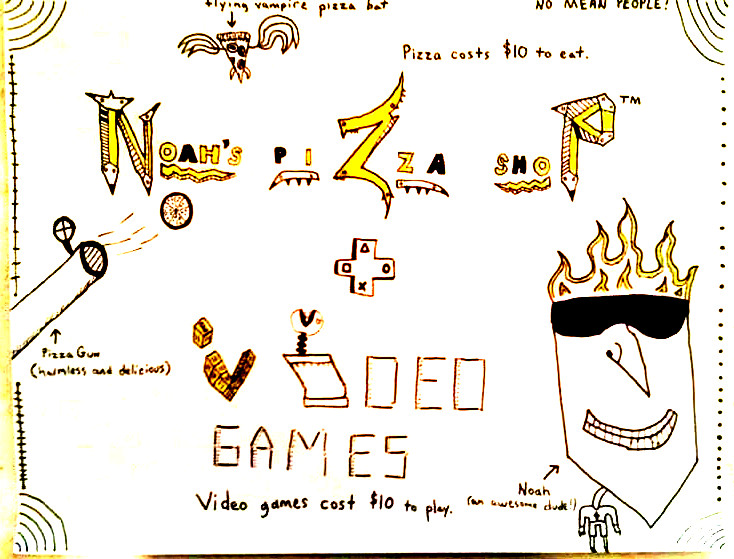 flying vampire pizza bat
NO MEAN PEOPLE!
Pizza costs $10 to eat.
NOAH'S PIZZA SHOP™
Pizza Gun
(harmless and delicious)
VIDEO
GAMES
Video games cost $10 to play.
Noah
(an awesome dude!)